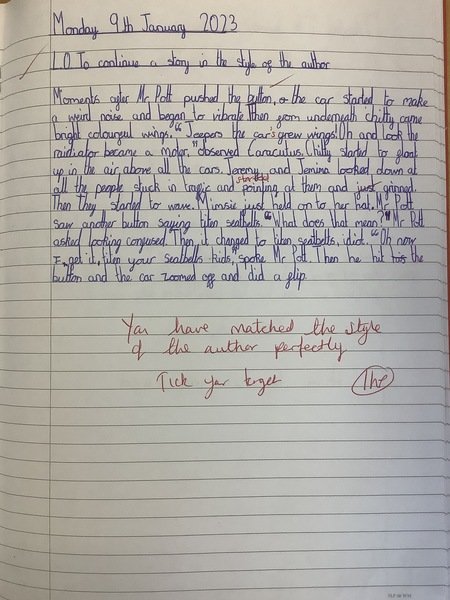 Monday 9th January 2023
L.O To continue a story in the style of the author
Moments after Mr Pott pushed the button, the car started to make
a weird noise and began to vibrate. Then from underneath chitty came
bright colourgul wings. "Jeepers the car's grew wings! Oh and look the
raidiator became a motor," observed Caractucus. Chitty started to gloat
up in the air above all the cars. Jeremy and Jemima looked down at
started
all the people stuck in trafic and pointing at them and just grinned.
Then they started to wave. Mimsie just held on to her hat. Mr Pott
saw another button saying titen seatbelts. "What does that mean?" Mr Pott
asked looking confused. Then it changed to titen seatbelts, idiot. "Oh now
I get it, titen your seatbelts kids," spoke Mr Pott. Then he hit the
button and the car zoomed off and did a flip.
You have matched the style
of the author perfectly
Tick your target
1hp